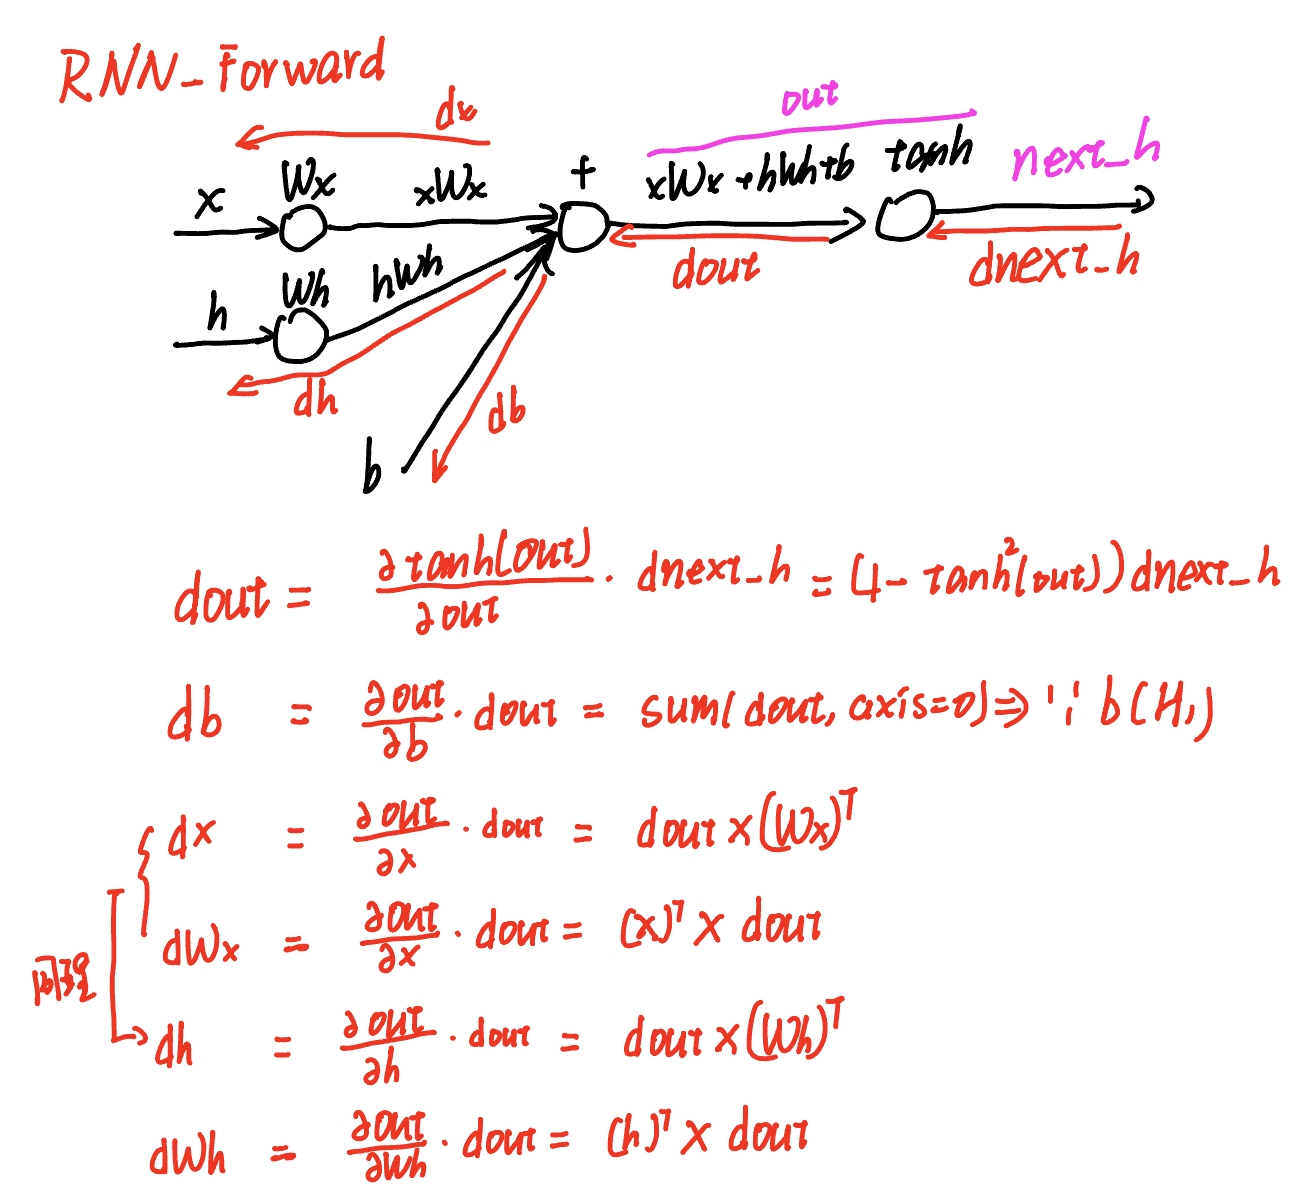 RNN_Forward
dx
out
x
Wx
xWx
+
xWx+hWh+b
tanh
next_h
h
Wh
hWh
dout
dnext_h
dh
db
b
dout = ∂tanh(out)/∂out · dnext_h = (1- tanh²(out)) dnext_h
db = ∂out/∂b · dout = sum(dout, axis=0) ⇒ ∵ b(H,)
dx = ∂out/∂x · dout = dout x (Wx)ᵀ
dWx = ∂out/∂x · dout = (x)ᵀ x dout
同理
dh = ∂out/∂h · dout = dout x (Wh)ᵀ
dWh = ∂out/∂Wh · dout = (h)ᵀ x dout